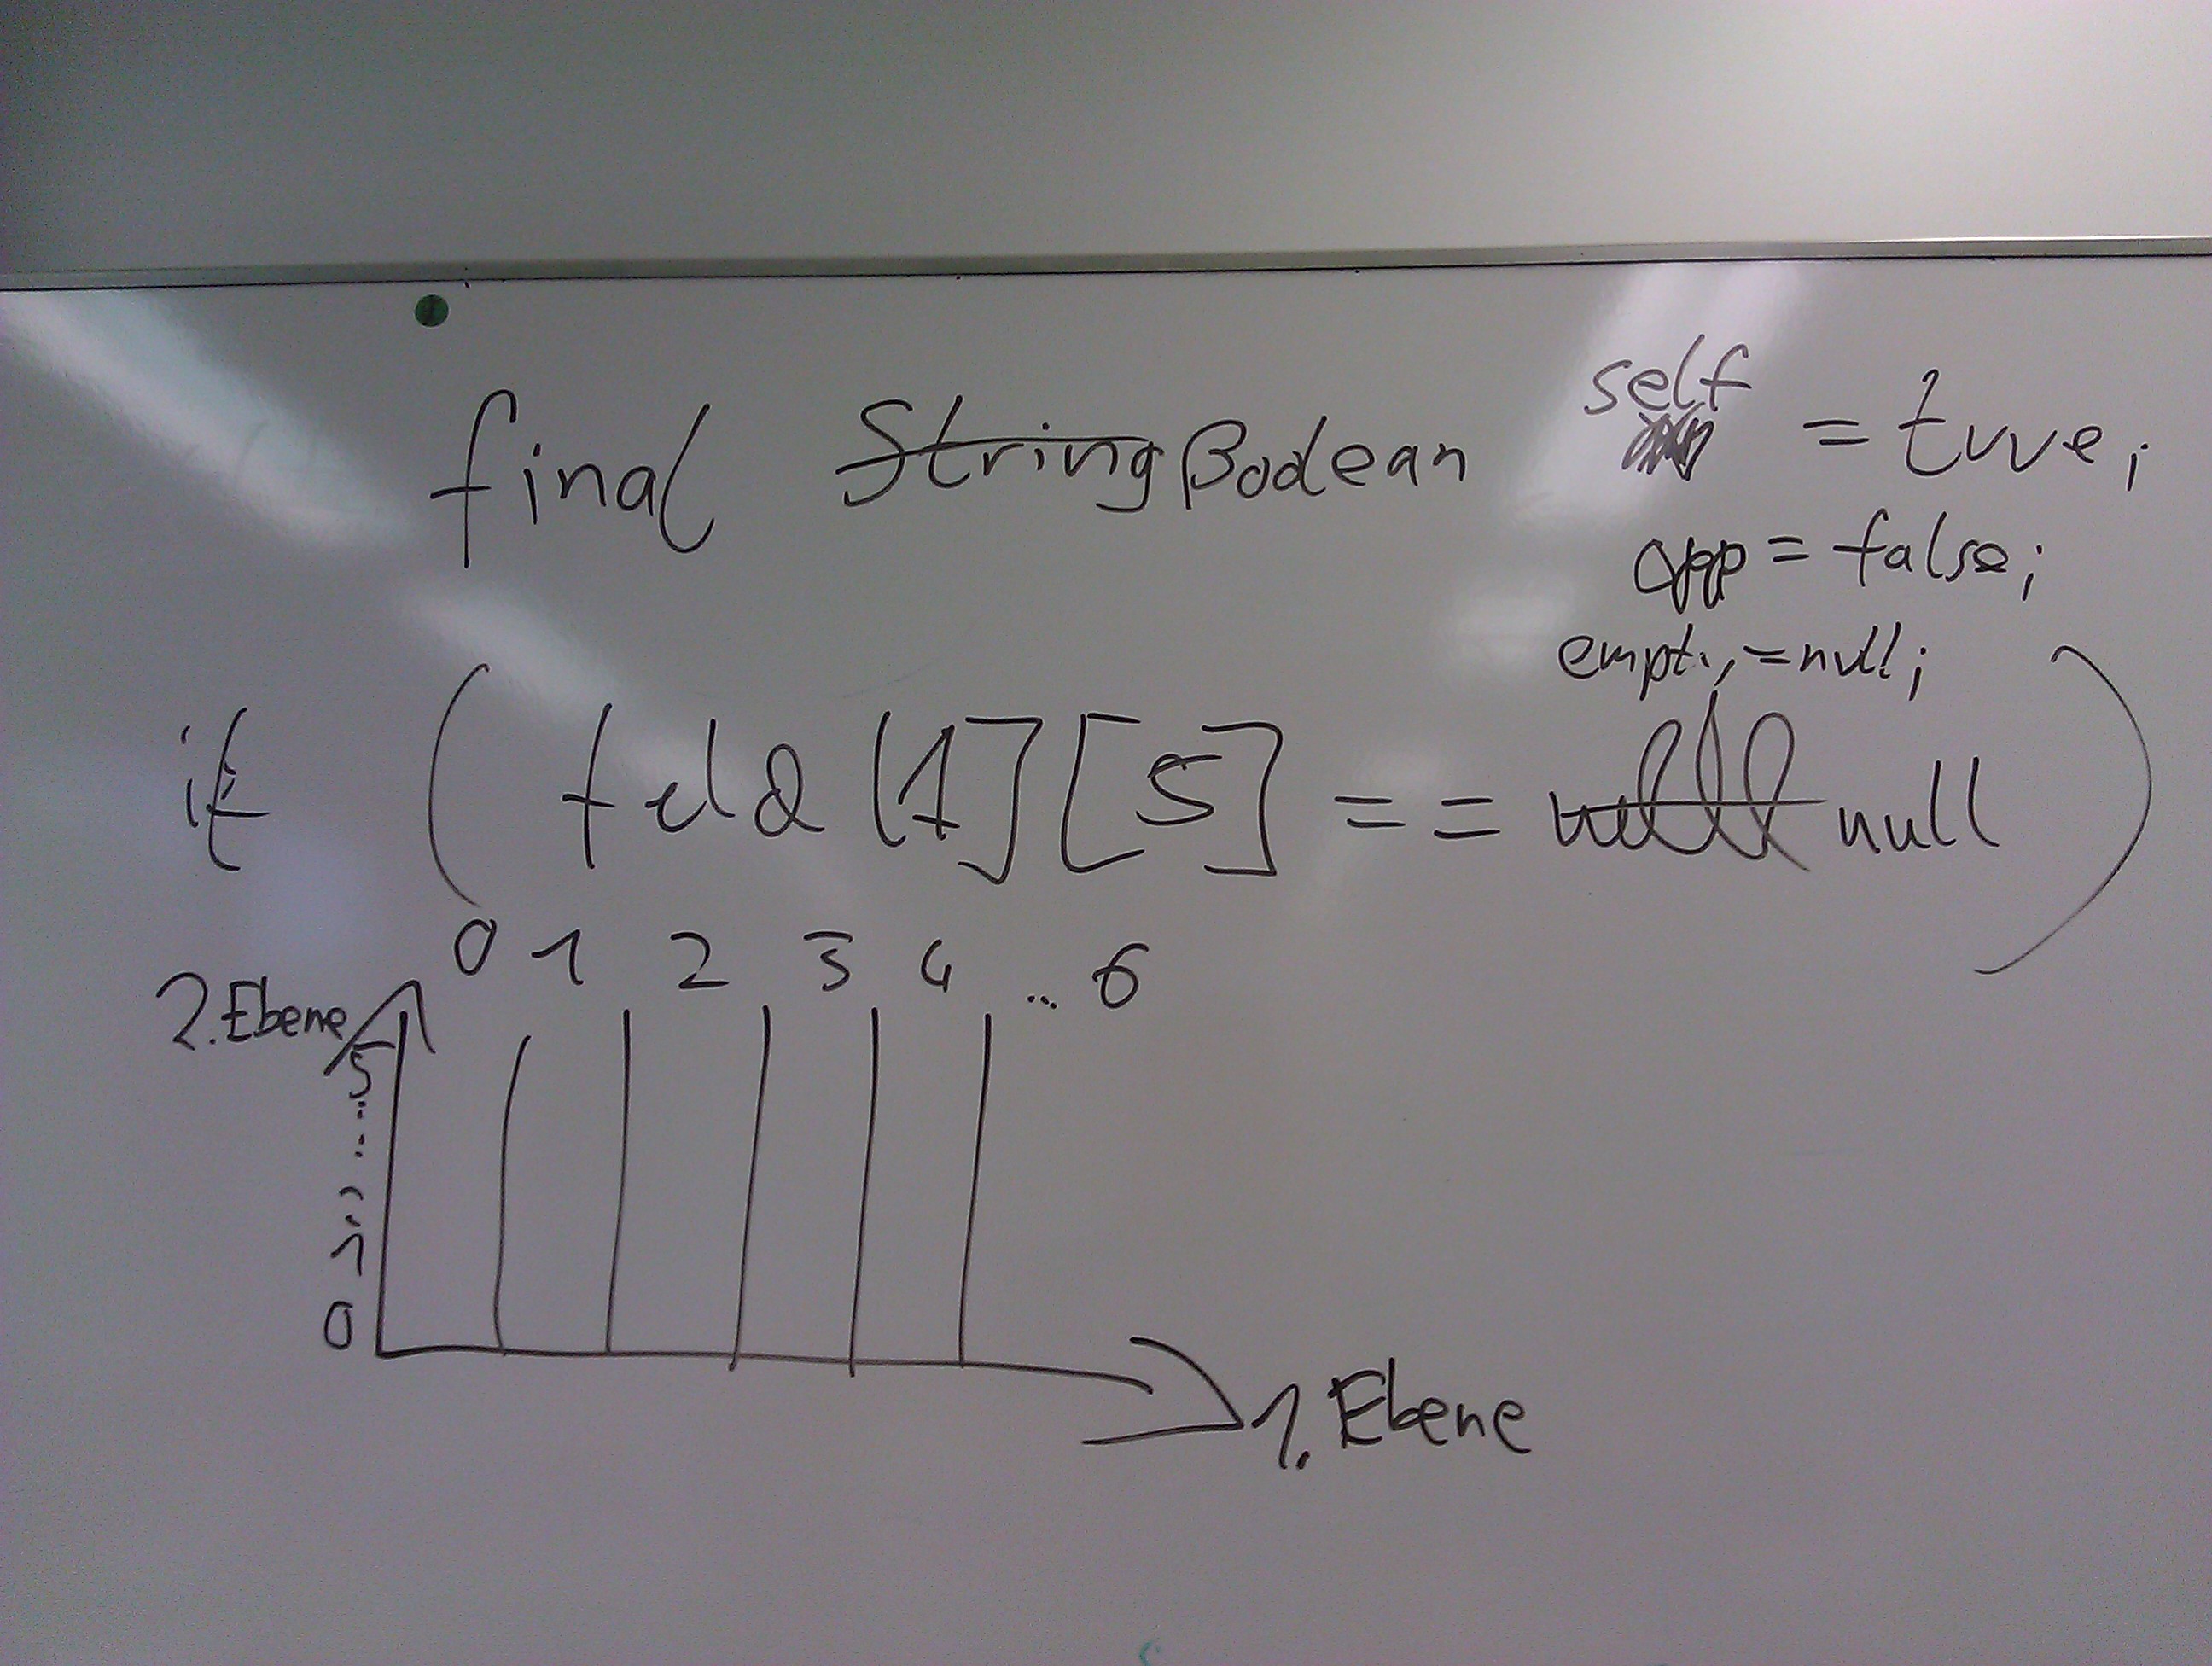 final String Boolean self = true;
opp = false;
empty = null;
if ( feld [1] [5] == null null )
0 1 2 3 4 ... 6
2. Ebene
5
...
2
1
0
1. Ebene